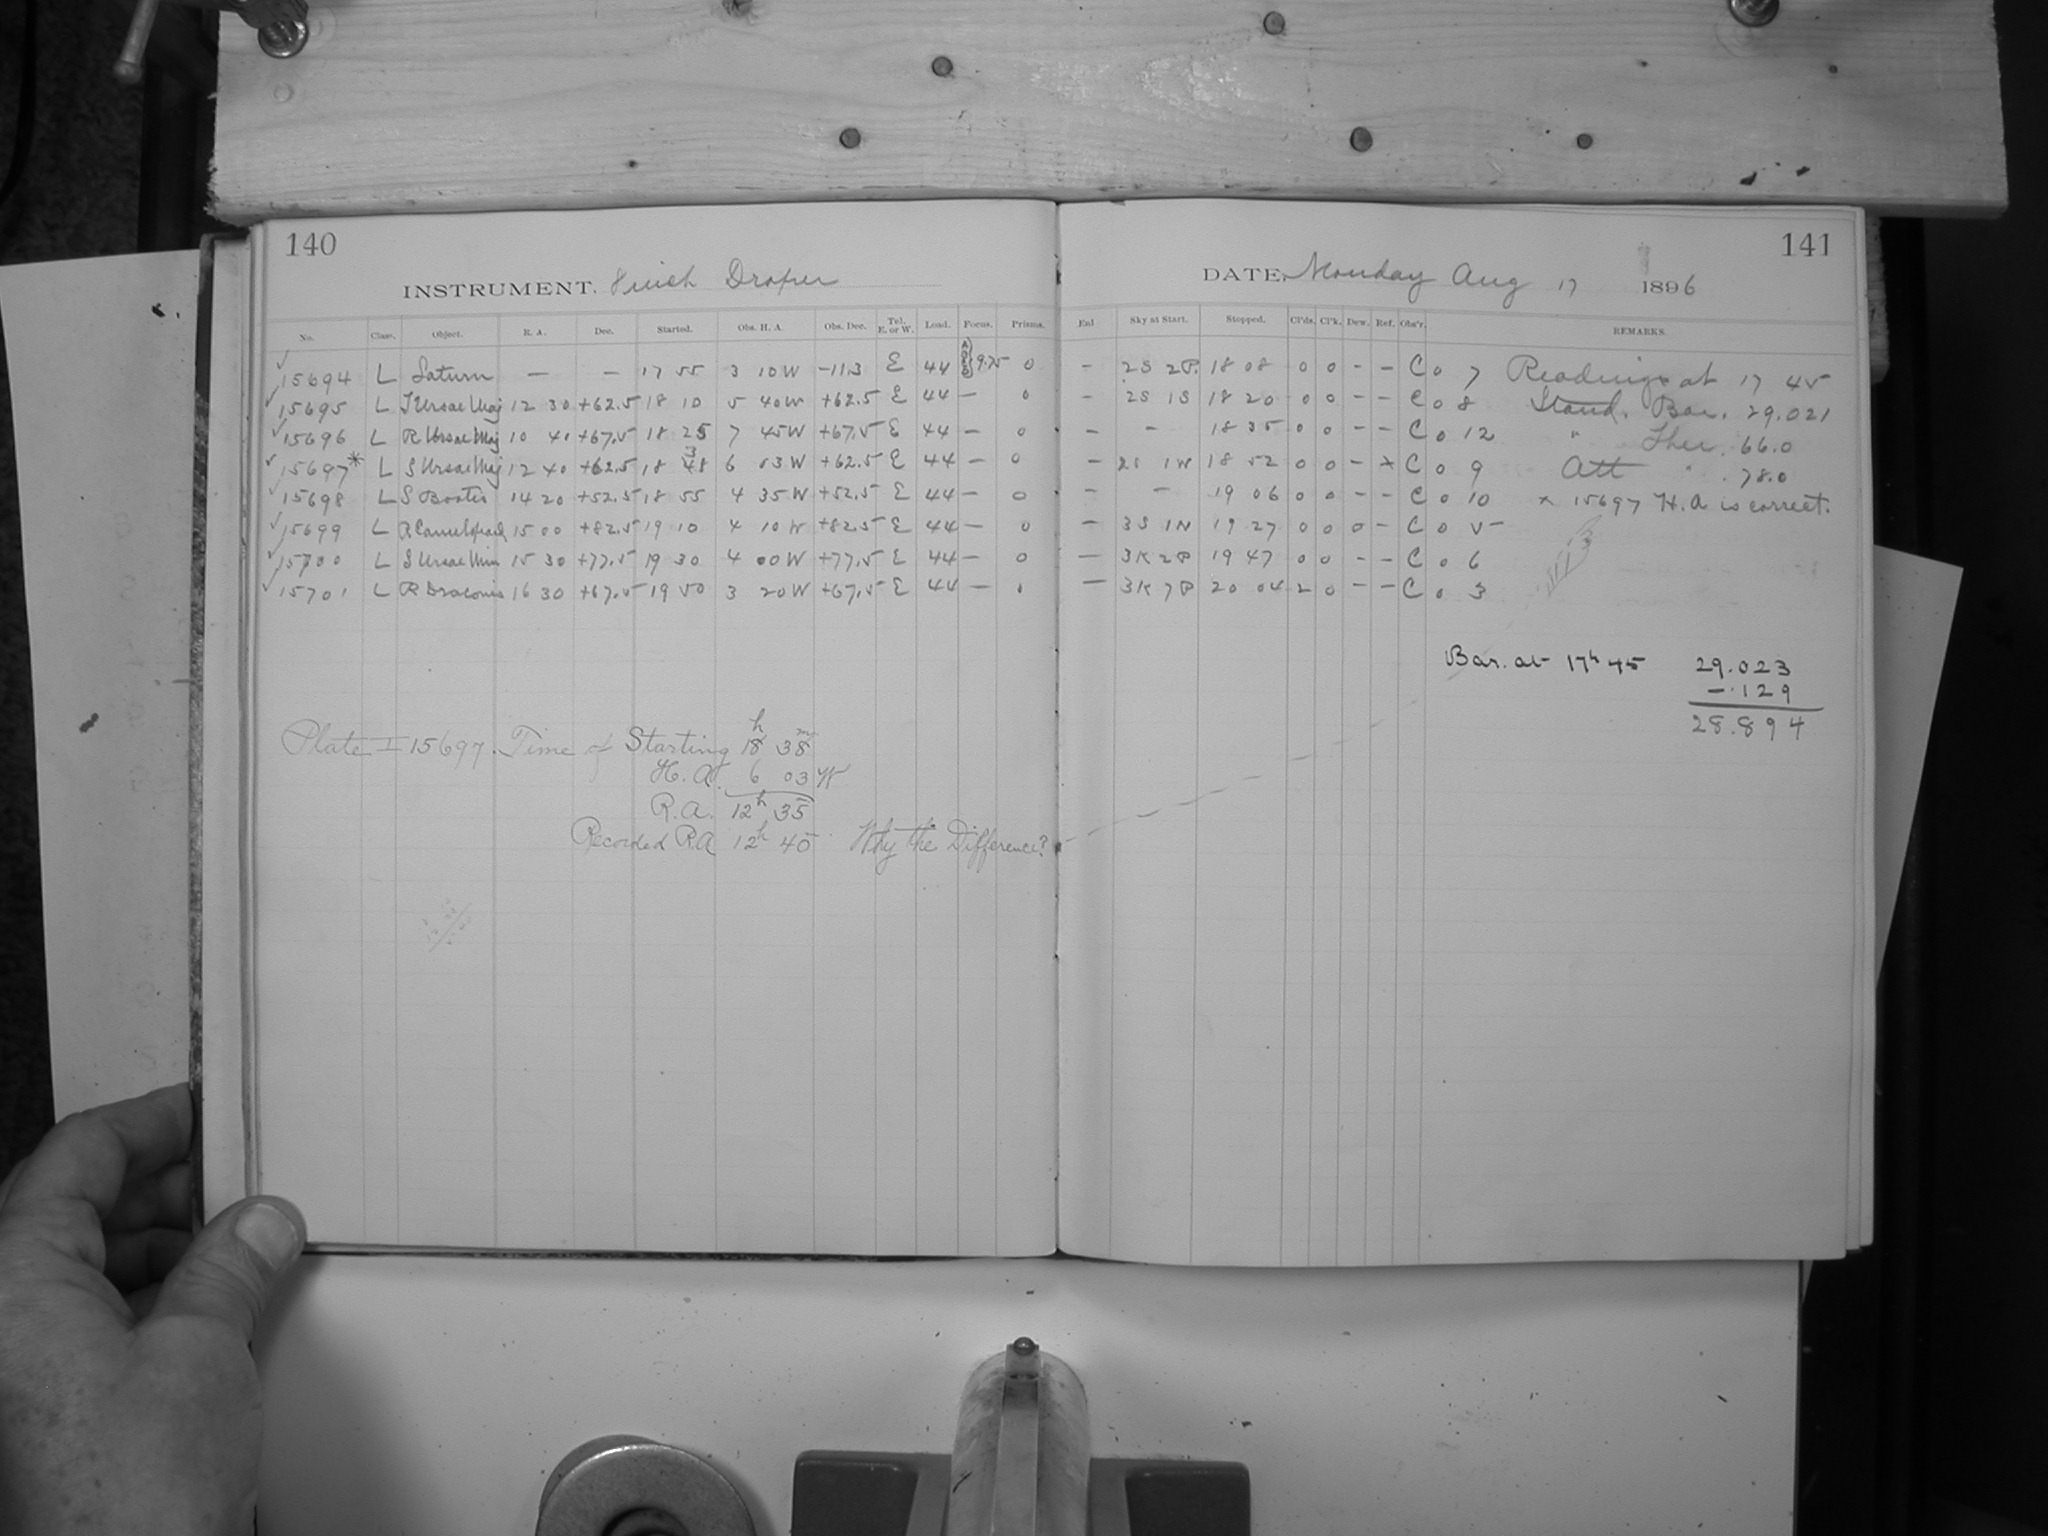 140
INSTRUMENT. 8 inch Draper
No. Class. Object. R. A. Dec. Started. Obs. H. A. Obs. Dec. Tel. E. or W. Load. Focus. Prisms.
✓ 15694 L Saturn — — 17 55 3 10 W -11.3 E 44 9.75 0
✓ 15695 L T Ursae Maj 12 30 +62.5 18 10 5 40 W +62.5 E 44 — 0
✓ 15696 L R Ursae Maj 10 40 +67.5 18 25 7 45 W +67.5 E 44 — 0
✓ 15697* L S Ursae Maj 12 40 +62.5 18 48 3 6 03 W +62.5 E 44 — 0
✓ 15698 L S Bootis 14 20 +52.5 18 55 4 35 W +52.5 E 44 — 0
✓ 15699 L R 15 00 +82.5 19 10 4 10 W +82.5 E 44 — 0
✓ 15700 L S Ursae Min 15 30 +77.5 19 30 4 00 W +77.5 E 44 — 0
✓ 15701 L R Draconis 16 30 +67.5 19 50 3 20 W +67.5 E 44 —
Plate I 15697. Time of Starting 18h 38m
H. A. 6 03 W
R. A. 12h 35
Recorded R.A. 12h 40 Why the Difference?
141
DATE, Monday Aug 17 1896
Enl Sky at Start. Stopped. Cl'ds. Cl'k. Dew. Ref. Obs'r. REMARKS.
- 2S 2P. 18 08 0 0 - - C 0 7 Readings at 17 45
- 2S 1S 18 20 0 0 - - C 0 8 Stand. Bar. 29.021
- - 18 35 0 0 - - C 0 12 " Ther. 66.0
- 2S 1N 18 52 0 0 - x C 0 9 Att " 78.0
- - 19 06 0 0 - - C 0 10 x 15697 H.A is correct.
- 3S 1N 19 27 0 0 0 - C 0 5
- 3K 2P 19 47 0 0 - - C 0 6
- 3K 7P 20 04 2 0 - - C 0 3
Bar. at 17h 45 29.023
-.129
28.894